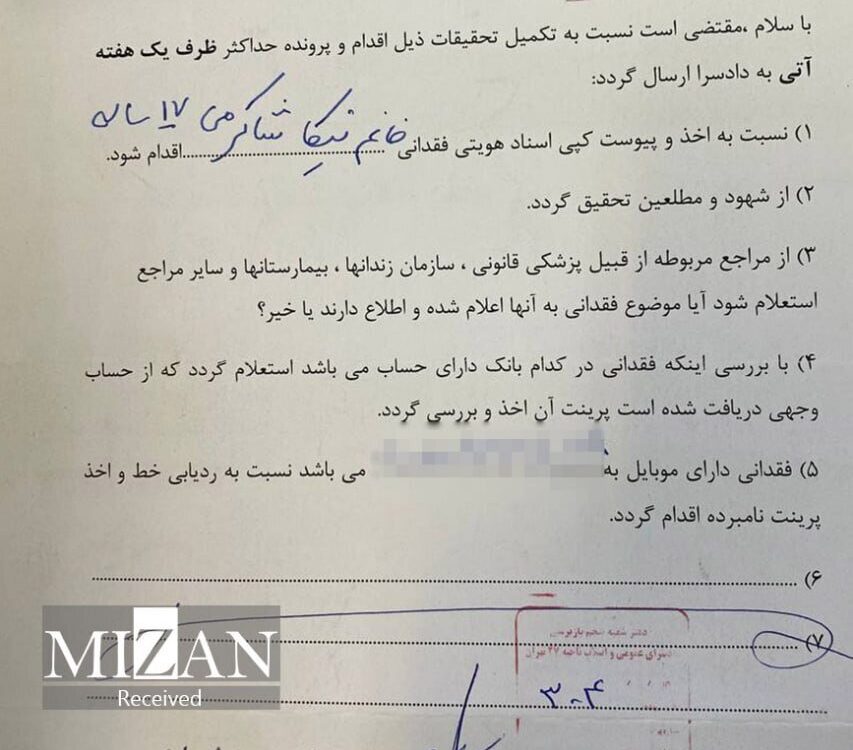 با سلام ،مقتضی است نسبت به تکمیل تحقیقات ذیل اقدام و پرونده حداکثر ظرف یک هفته
آتی به دادسرا ارسال گردد:
خانم نیکا شاکرمی ۱۷ ساله
۱) نسبت به اخذ و پیوست کپی اسناد هویتی فقدانی..............................اقدام شود.
۲) از شهود و مطلعین تحقیق گردد.
۳) از مراجع مربوطه از قبیل پزشکی قانونی ، سازمان زندانها ، بیمارستانها و سایر مراجع
استعلام شود آیا موضوع فقدانی به آنها اعلام شده و اطلاع دارند یا خیر؟
۴) با بررسی اینکه فقدانی در کدام بانک دارای حساب می باشد استعلام گردد که از حساب
وجهی دریافت شده است پرینت آن اخذ و بررسی گردد.
۵) فقدانی دارای موبایل به می باشد نسبت به ردیابی خط و اخذ
پرینت نامبرده اقدام گردد.
۶) ..............................
۷) ..............................
دفتر شعبه بازپرسی
دادسرای عمومی و انقلاب ناحیه ۲۷ تهران
۳-۰۴
MIZAN
Received